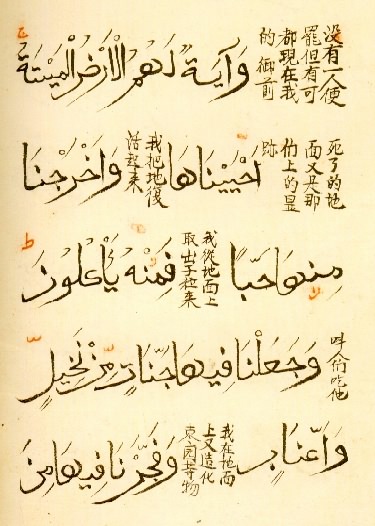 没有一人便
罷但有可
都現在我
的御前
وَآيَةٌ لَهُمُ الْأَرْضُ الْمَيْتَةُ
死了的地
面又是那
上的显
跡
اَحْيَيْنَاهَا
我把地復
活起來
وَاَخْرَجْنَا
مِنْهَا حَبًّا
我從地面上
取出子粒來
فَمِنْهُ يَأْكُلُونَ
吃他
وَجَعَلْنَا فِيهَا جَنَّاتٍ مِنْ نَخِيلٍ
وَأَعْنَابٍ
我在地面
上又造化
園等物
وَفَجَّرْنَا فِيهَا مِنَ